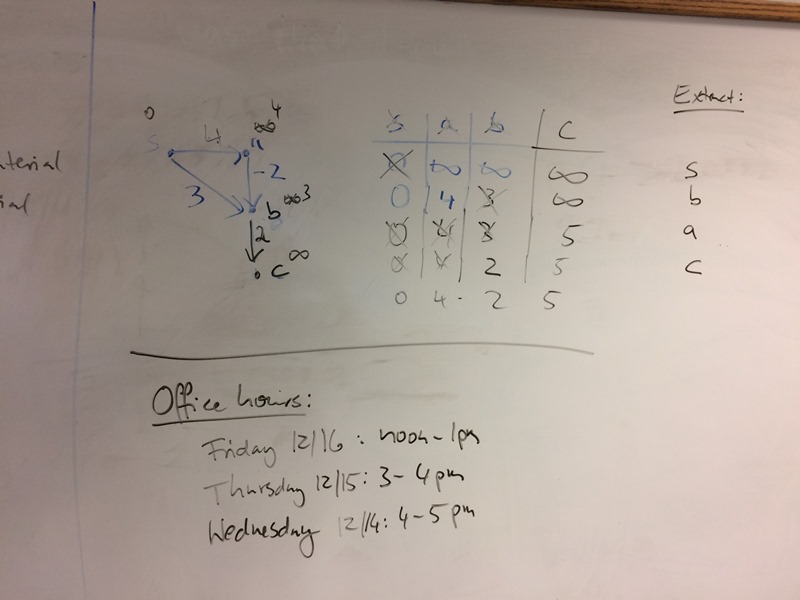 aterial
ial
0
4
s 4 a ∞
-2
3
b ∞ 3
2
c ∞
s a b c
0 ∞ ∞ ∞
0 4 3 ∞
0 4 3 5
0 4 2 5
0 4 2 5
Extract:
s
b
a
c
Office hours:
Friday 12/16: noon-1pm
Thursday 12/15: 3-4pm
Wednesday 12/14: 4-5pm